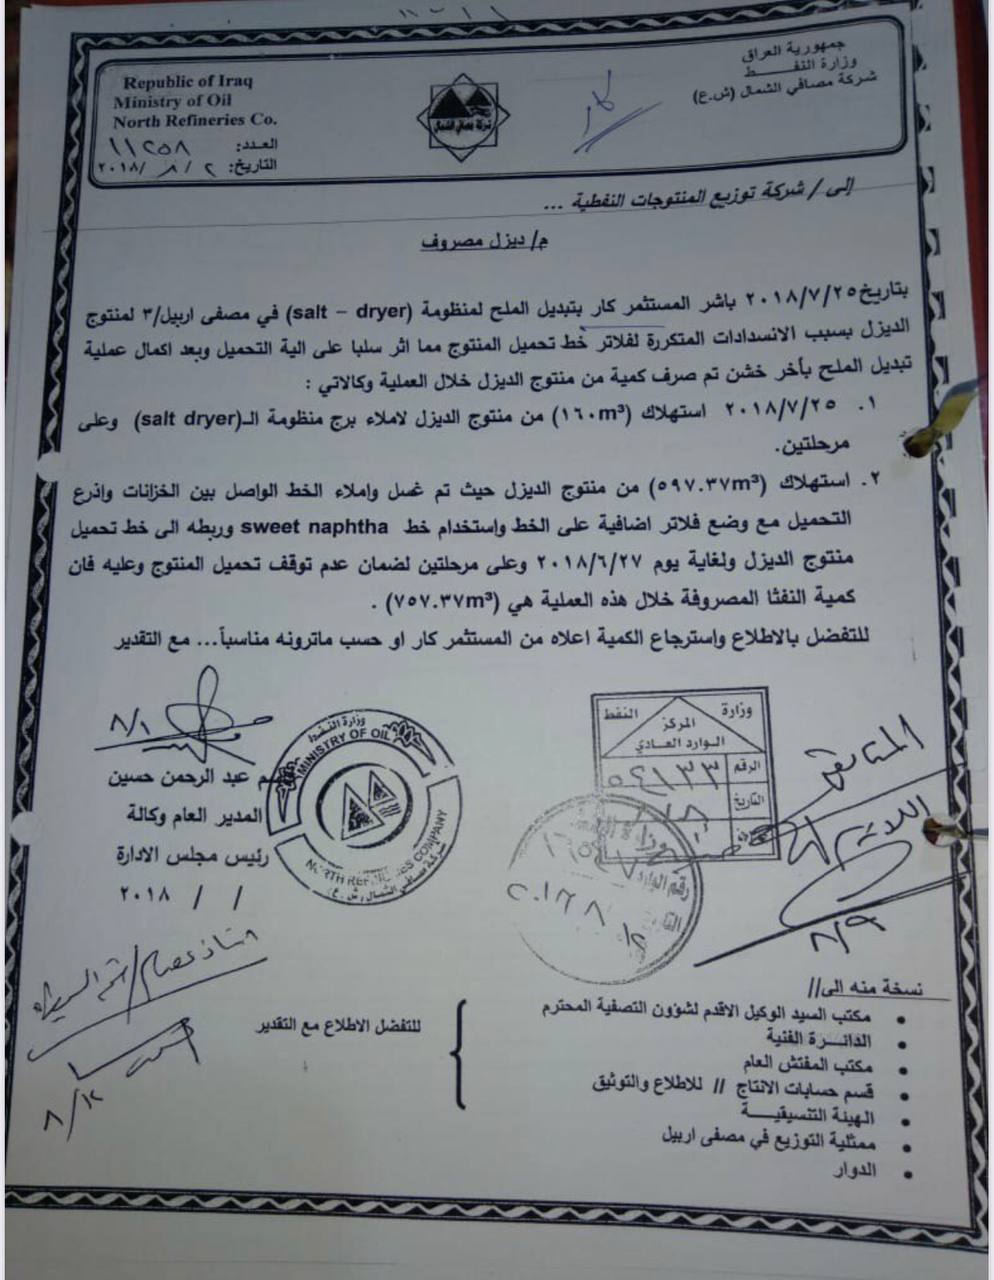 جمهورية العراق
وزارة النفــــــط
شركة مصافي الشمال (ش.ع)
كار
شركة مصافي الشمال
Republic of Iraq
Ministry of Oil
North Refineries Co.
العـدد: ١١٢٥٨
التاريخ: ٢ / ٨ /٢٠١٨
إلى / شركة توزيع المنتوجات النفطية ...
م/ ديزل مصروف
بتاريخ ٢٠١٨/٧/٢٥ باشر المستثمر كار بتبديل الملح لمنظومة (salt – dryer) في مصفى اربيل/٣ لمنتوج
الديزل بسبب الانسدادات المتكررة لفلاتر خط تحميل المنتوج مما اثر سلبا على الية التحميل وبعد اكمال عملية
تبديل الملح بأخر خشن تم صرف كمية من منتوج الديزل خلال العملية وكالاتي :
١. ٢٠١٨/٧/٢٥ استهلاك (١٦٠m³) من منتوج الديزل لاملاء برج منظومة الـ(salt dryer) وعلى
مرحلتين.
٢. استهلاك (٥٩٧.٣٧m³) من منتوج الديزل حيث تم غسل واملاء الخط الواصل بين الخزانات واذرع
التحميل مع وضع فلاتر اضافية على الخط واستخدام خط sweet naphtha وربطه الى خط تحميل
منتوج الديزل ولغاية يوم ٢٠١٨/٦/٢٧ وعلى مرحلتين لضمان عدم توقف تحميل المنتوج وعليه فان
كمية النفثا المصروفة خلال هذه العملية هي (٧٥٧.٣٧m³) .
للتفضل بالاطلاع واسترجاع الكمية اعلاه من المستثمر كار او حسب ماترونه مناسباً... مع التقدير
٨/١
عبد الرحمن حسين
المدير العام وكالة
رئيس مجلس الادارة
/ / ٢٠١٨
وزارة النفط
MINISTRY OF OIL
NORTH REFINERIES COMPANY
شركة مصافي الشمال (ش.ع)
وزارة النفط
المركز
الوارد العادي
الرقم
التاريخ
رقم الوارد
٨/٩
نسخة منه الى//
• مكتب السيد الوكيل الاقدم لشؤون التصفية المحترم
• الدائـــرة الفنية
• مكتب المفتش العام
• قسم حسابات الانتاج // للاطلاع والتوثيق
• الهيئة التنسيقيـــــة
• ممثلية التوزيع في مصفى اربيل
• الدوار
للتفضل الاطلاع مع التقدير